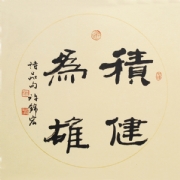 積健
為雄
詩品句